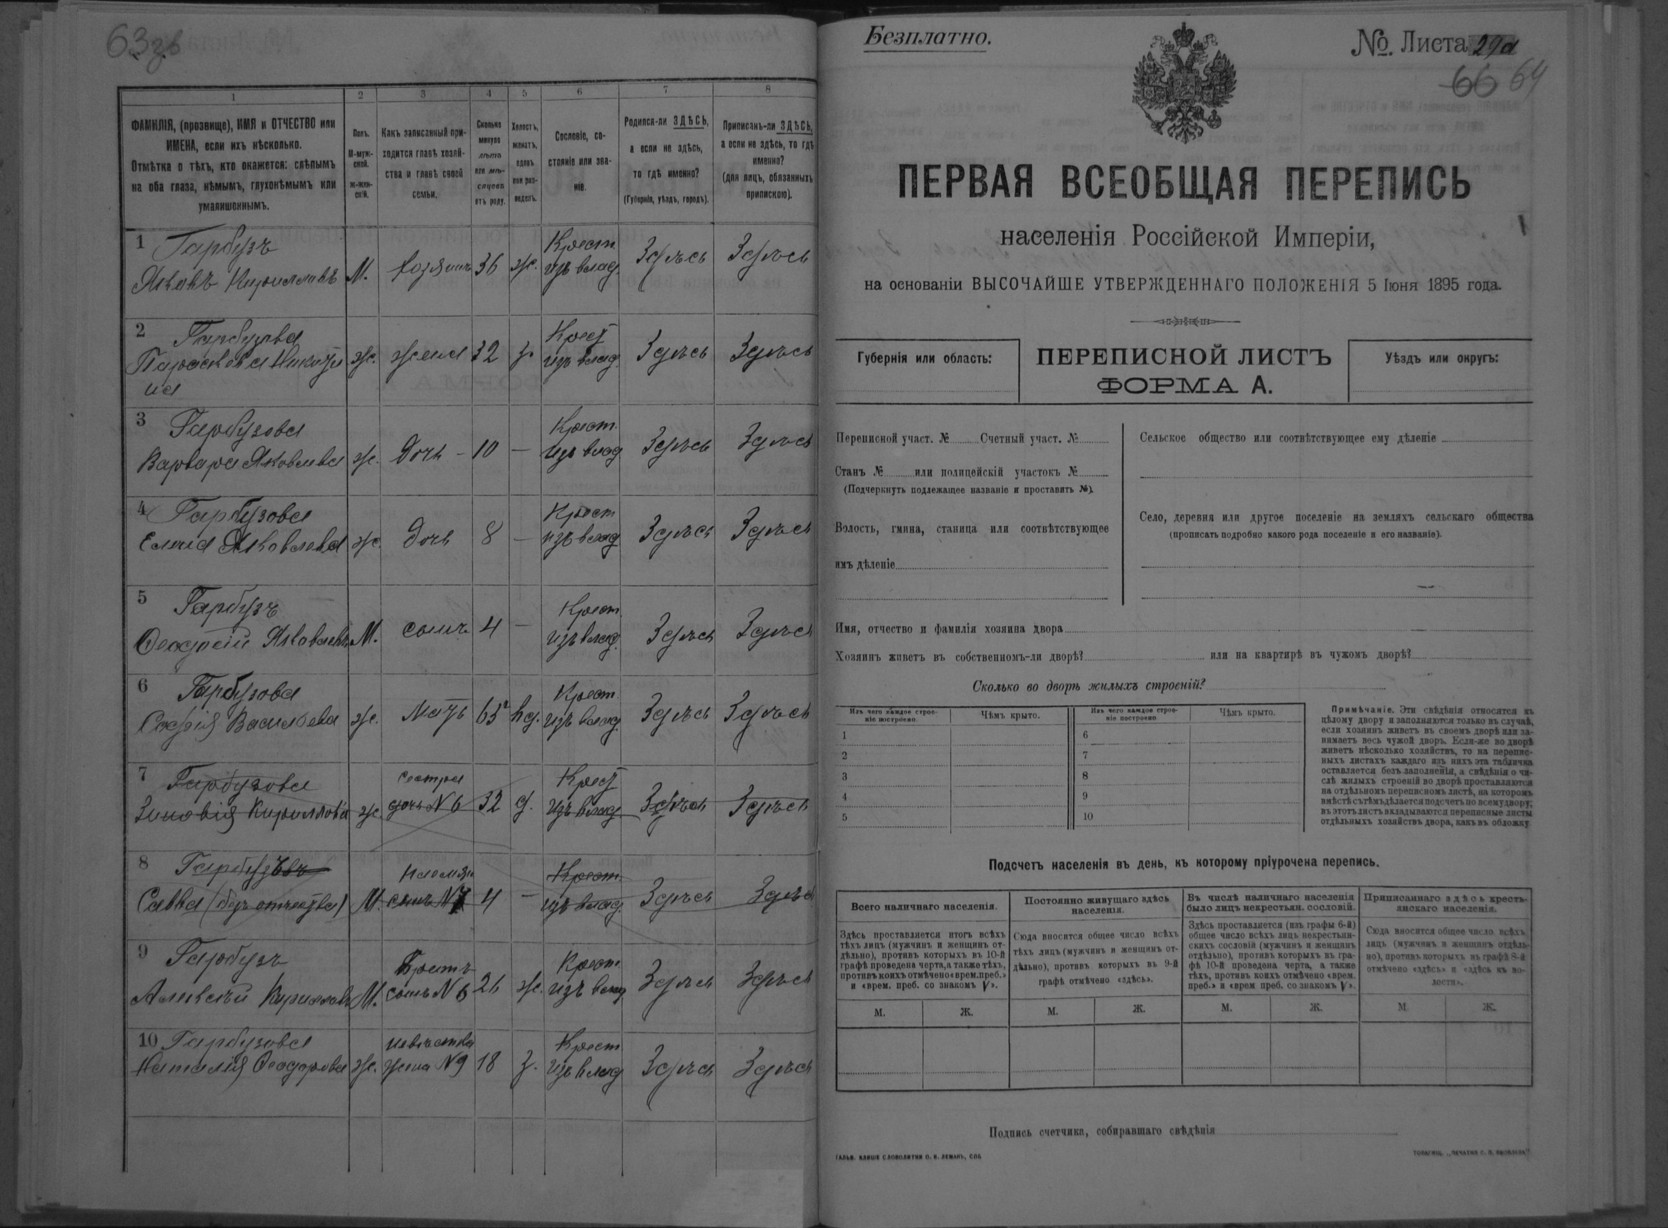 63 зв
1
2
3
4
5
6
7
8
ФАМИЛІЯ, (прозвище), ИМЯ и ОТЧЕСТВО или
ИМЕНА, если ихъ нѣсколько.
Отмѣтка о тѣхъ, кто окажется: слѣпымъ
на оба глаза, нѣмымъ, глухонѣмымъ или
умалишеннымъ.
Полъ.
М-муж-
ской.
ж-жен-
скій.
Какъ записанный при-
ходится главѣ хозяй-
ства и главѣ своей
семьи.
Сколько
минуло
лѣтъ
или мѣ-
сяцевъ
отъ роду.
Холостъ,
женатъ,
вдовъ
или раз-
веденъ.
Сословіе, со-
стояніе или зва-
ніе.
Родился-ли ЗДѢСЬ,
а если не здѣсь,
то гдѣ именно?
(Губернія, уѣздъ, городъ).
Приписанъ-ли ЗДѢСЬ,
а если не здѣсь, то гдѣ
именно?
(для лицъ, обязанныхъ
припискою).
1 Гарбузъ
Яковъ Кирилловъ М. хозяинъ 36 ж. Крест. изъ влад. Здѣсь Здѣсь
2 Гарбузова
Параскева ж. жена 32 з. Крест. изъ влад. Здѣсь Здѣсь
3 Гарбузова
Варвара Яковлева ж. дочь 10 — Крест. изъ влад. Здѣсь Здѣсь
4 Гарбузова
Яковлева ж. дочь 8 — Крест. изъ влад. Здѣсь Здѣсь
5 Гарбузъ
Яковлевъ М. сынъ 4 — Крест. изъ влад. Здѣсь Здѣсь
6 Гарбузова
Софія Васильева ж. мать 65 вд. Крест. изъ влад. Здѣсь Здѣсь
7 Гарбузова
Зиновія Кириллова ж. сестра дочь N6 32 д. Крест. изъ влад. Здѣсь Здѣсь
8 Гарбузъ
Савва (безъ отчества) М. сынъ N7 4 — Крест. изъ влад. Здѣсь Здѣсь
9 Гарбузъ
Алексѣй Кирилловъ М. братъ сынъ N6 26 ж. Крест. изъ влад. Здѣсь Здѣсь
10 Гарбузова
Наталія Феодорова ж. невѣстка жена N9 18 з. Крест. изъ влад. Здѣсь Здѣсь
Безплатно.
№ Листа 29а
66 64
ПЕРВАЯ ВСЕОБЩАЯ ПЕРЕПИСЬ
населенія Россійской Имперіи,
на основаніи ВЫСОЧАЙШЕ УТВЕРЖДЕННАГО ПОЛОЖЕНІЯ 5 Іюня 1895 года.
Губернія или область:
ПЕРЕПИСНОЙ ЛИСТЪ
ФОРМА А.
Уѣздъ или округъ:
Переписной участ. № Счетный участ. №
Станъ № или полицейскій участокъ №
(Подчеркнуть подлежащее названіе и проставить №).
Волость, гмина, станица или соотвѣтствующее
имъ дѣленіе
Сельское общество или соотвѣтствующее ему дѣленіе
Село, деревня или другое поселеніе на земляхъ сельскаго общества
(прописать подробно какого рода поселеніе и его названіе).
Имя, отчество и фамилія хозяина двора
Хозяинъ живетъ въ собственномъ-ли дворѣ? или на квартирѣ въ чужомъ дворѣ?
Сколько во дворѣ жилыхъ строеній?
Изъ чего каждое строе-
ніе построено.
Чѣмъ крыто.
Изъ чего каждое строе-
ніе построено.
Чѣмъ крыто.
1
2
3
4
5
6
7
8
9
10
Примѣчаніе. Эти свѣдѣнія относятся къ
цѣлому двору и заполняются только въ случаѣ,
если хозяинъ живетъ въ своемъ дворѣ или за-
нимаетъ весь чужой дворъ. Если-же во дворѣ
живетъ нѣсколько хозяйствъ, то на перепис-
ныхъ листахъ каждаго изъ нихъ эта табличка
оставляется безъ заполненія, а свѣдѣнія о чи-
слѣ жилыхъ строеній во дворѣ проставляются
на отдѣльномъ переписномъ листѣ, на которомъ
вмѣстѣ съ тѣмъ дѣлается подсчетъ по всему двору;
въ этотъ листъ вкладываются переписные листы
отдѣльныхъ хозяйствъ двора, какъ въ обложку
Подсчетъ населенія въ день, къ которому пріурочена перепись.
Всего наличнаго населенія.
Постоянно живущаго здѣсь
населенія.
Въ числѣ наличнаго населенія
было лицъ некрестьян. сословій.
Приписаннаго здѣсь кресть-
янскаго населенія.
Здѣсь проставляется итогъ всѣхъ
тѣхъ лицъ (мужчинъ и женщинъ от-
дѣльно), противъ которыхъ въ 10-й
графѣ проведена черта, а также тѣхъ,
противъ коихъ отмѣчено «врем. преб.»
и «врем. преб. со знакомъ V».
Сюда вносится общее число всѣхъ
тѣхъ лицъ (мужчинъ и женщинъ от-
дѣльно), противъ которыхъ въ 9-й
графѣ отмѣчено «здѣсь».
Здѣсь проставляется (изъ графы 6-й)
общее число всѣхъ лицъ некрестьян-
скихъ сословій (мужчинъ и женщинъ
отдѣльно), противъ которыхъ въ гра-
фѣ 10-й проведена черта, а также
тѣхъ, противъ коихъ отмѣчено «врем.
преб.» и «врем преб. со знакомъ V».
Сюда вносится общее число всѣхъ
лицъ (мужчинъ и женщинъ отдѣль-
но), противъ которыхъ въ графѣ 8-й
отмѣчено «здѣсь» и «здѣсь къ во-
лости».
М.
Ж.
М.
Ж.
М.
Ж.
М.
Ж.
Подпись счетчика, собиравшаго свѣдѣнія